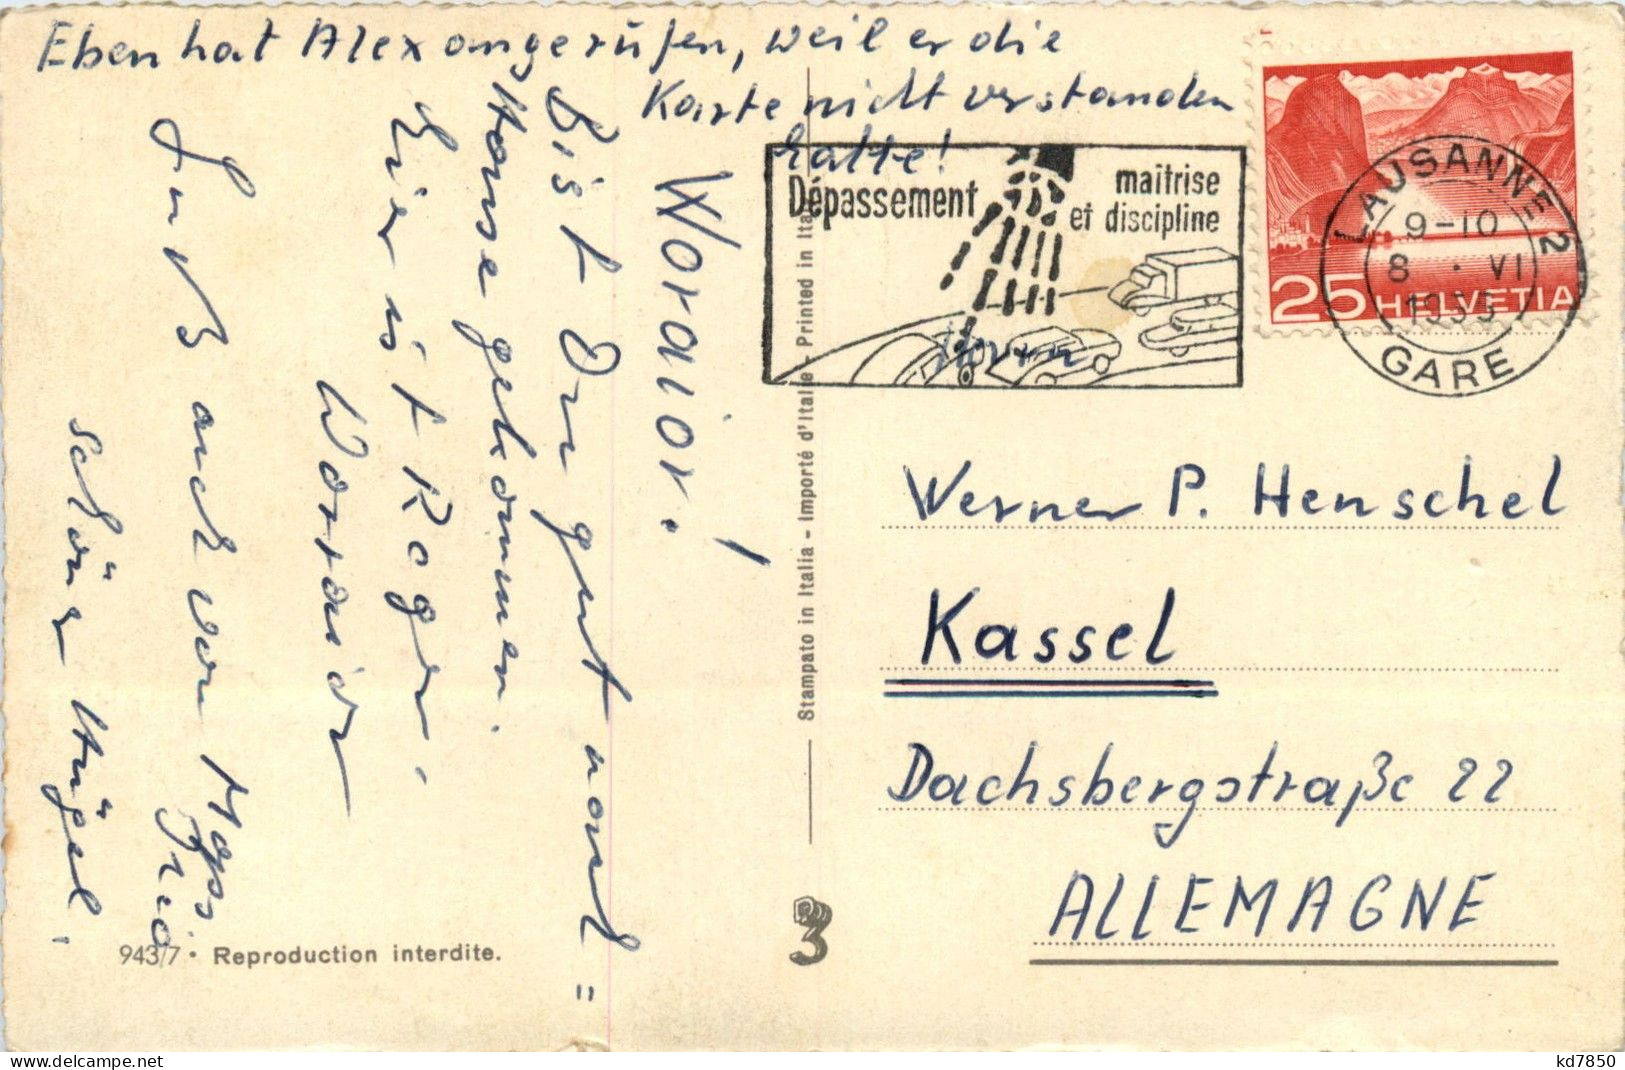 Eben hat Alex angerufen, weil er die
Karte nicht verstanden
hatte!
Woraior!
Bist Du gut nach=
Hause gekommen.
Hier ist Roger.
Woraior
Gruß auch von
schöner Hügel.
943/7 • Reproduction interdite.
Stampato in Italia - Importé d'Italie - Printed in Ital
3
Dépassement
maîtrise
et discipline
Herrn
25 HELVETIA
LAUSANNE 2
9-10
8 • VI
1955
GARE
Werner P. Henschel
Kassel
Dachsbergstraße 22
ALLEMAGNE
delcampe.net
kd7850